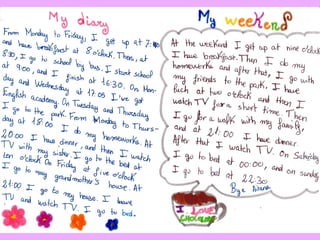 My diary
From Monday to Friday, I get up at 7:30
and have breakfast at 8 o'clock. Then, at
8:30, I go to school by bus. I start school
at 9:00, and I finish at 16:30. On Mon-
day and Wednesday at 17:05 I've got
English academy. On Tuesday and Thursday
I go to the park. From Monday to Thurs-
day at 18:00 I do my homeworks. At
20:00 I have dinner, and then I watch
TV with my sister. I go to the bed at
ten o'clock. On Friday at five o'clock
I go to my grandmother's house. At
21:00 I go to my house. I have
TV and watch TV. I go to bed.
My weekend
At the weekend I get up at nine o'clock
I have breakfast. Then I do my
homeworks and after that, I go with
my friends to the park. I have
luch at two o'clock and then I
watch TV for a short time. Then
I go for a walk with my family,
and at 21:00 I have dinner.
After that I watch TV. On Saturday
I go to bed at 00:00, and on sunday
I go to bed at 22:30
Bye
I LOVE
CHOCOLATE